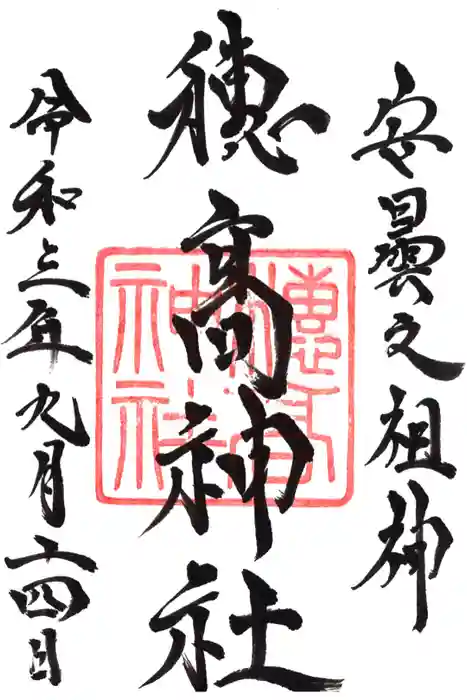 安曇之祖神
穂高神社
令和三年九月二十四日